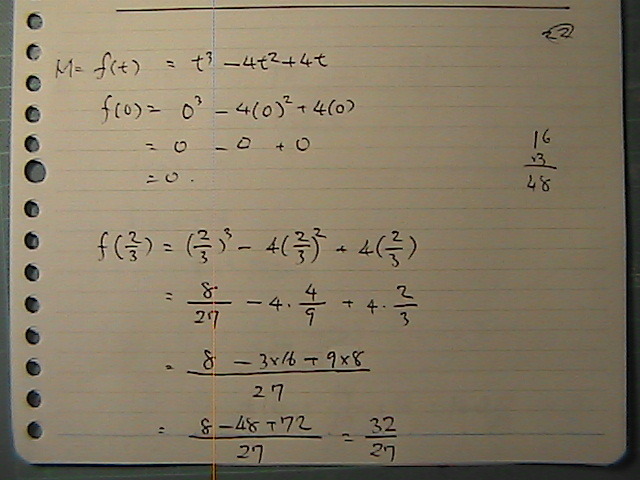 22
M = f(t) = t³ - 4t² + 4t
f(0) = 0³ - 4(0)² + 4(0)
= 0 - 0 + 0
= 0.
16
×3
48
f(2/3) = (2/3)³ - 4(2/3)² + 4(2/3)
= 8/27 - 4 · 4/9 + 4 · 2/3
= (8 - 3×16 + 9×8)/27
= (8 - 48 + 72)/27 = 32/27